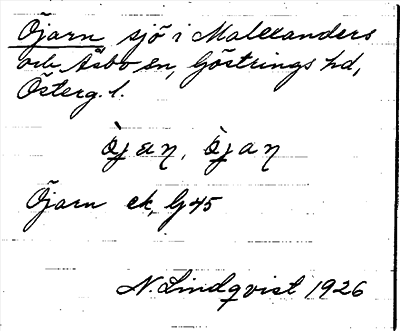 Öjarn sjö i Malexanders
och Åsbo sn, Göstrings hd,
Österg. l.
òjaη, òjaη
Öjarn ek, G45
N. Lindqvist 1926